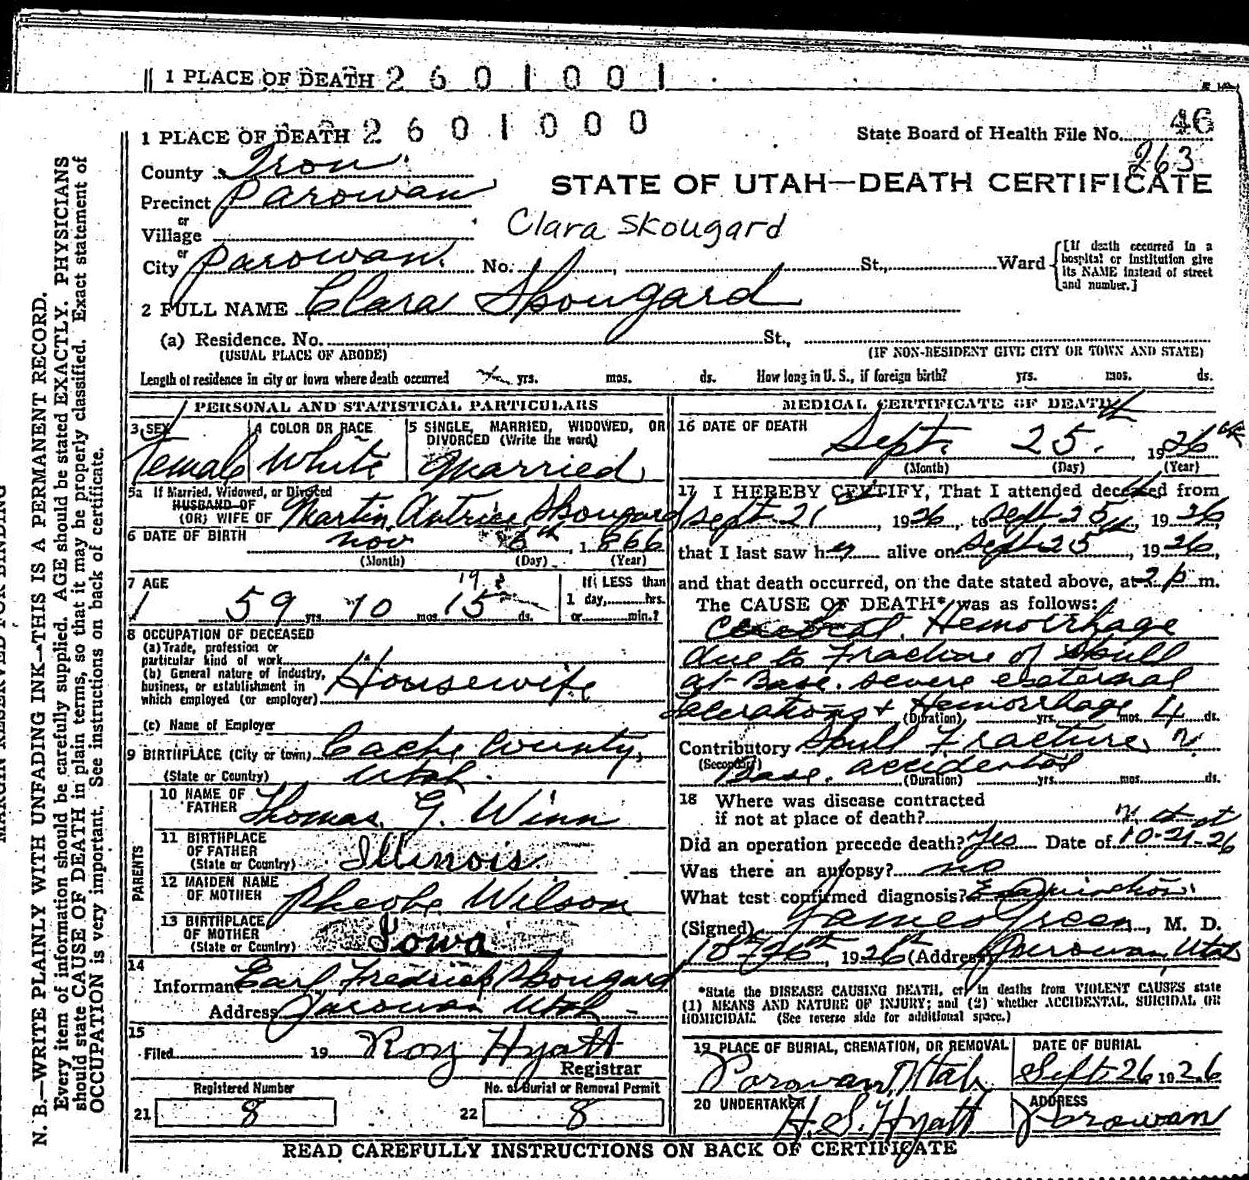 1 PLACE OF DEATH 2601001
1 PLACE OF DEATH 2601000
State Board of Health File No. 46
263
County Iron
STATE OF UTAH—DEATH CERTIFICATE
Precinct Parowan
or
Village
Clara Skougard
or
City Parowan. No. , St., Ward
[If death occurred in a hospital or institution give its NAME instead of street and number.]
2 FULL NAME Clara Skougard
(a) Residence. No. St.,
(USUAL PLACE OF ABODE) (IF NON-RESIDENT GIVE CITY OR TOWN AND STATE)
Length of residence in city or town where death occurred yrs. mos. ds. How long in U. S., if foreign birth? yrs. mos. ds.
PERSONAL AND STATISTICAL PARTICULARS
3 SEX
Female
4 COLOR OR RACE
White
5 SINGLE, MARRIED, WIDOWED, OR DIVORCED (Write the word)
Married
5a If Married, Widowed, or Divorced
HUSBAND OF
(OR) WIFE OF Martin Skougard
6 DATE OF BIRTH Nov 1866
(Month) (Day) (Year)
7 AGE
59 yrs. 10 mos. 15 ds.
If LESS than
1 day, hrs.
or min.?
8 OCCUPATION OF DECEASED
(a) Trade, profession or
particular kind of work
(b) General nature of Industry,
business, or establishment in
which employed (or employer) Housewife
(c) Name of Employer
9 BIRTHPLACE (City or town) Cache County,
(State or Country) Utah.
PARENTS
10 NAME OF
FATHER Thomas G. Winn
11 BIRTHPLACE
OF FATHER
(State or Country) Illinois
12 MAIDEN NAME
OF MOTHER Pheobe Wilson
13 BIRTHPLACE
OF MOTHER
(State or Country) Iowa
14
Informant Earl Fredrick Skougard
Address Parowan Utah
15
Filed 19 Roy Hyatt
Registrar
Registered Number
21 8
No. of Burial or Removal Permit
22 8
MEDICAL CERTIFICATE OF DEATH
16 DATE OF DEATH
Sept. 25. 1926
(Month) (Day) (Year)
17 I HEREBY CERTIFY, That I attended deceased from
Sept 21, 1926, to Sept 25th, 1926
that I last saw her alive on Sept 25th, 1926,
and that death occurred, on the date stated above, at 2 p m.
The CAUSE OF DEATH* was as follows:
Cerebral Hemorrhage
due to Fracture of Skull
at Base. severe external
lacerations + Hemorrhage
(Duration) yrs. mos. 4 ds.
Contributory Skull Fracture
(Secondary) Base. accidental
(Duration) yrs. mos. ds.
18 Where was disease contracted
if not at place of death?
Did an operation precede death? Yes Date of
Was there an autopsy? no
What test confirmed diagnosis? Examination
(Signed) James Green, M. D.
, 1926 (Address) Parowan, Utah
*State the DISEASE CAUSING DEATH, or, in deaths from VIOLENT CAUSES state
(1) MEANS AND NATURE OF INJURY; and (2) whether ACCIDENTAL, SUICIDAL OR
HOMICIDAL. (See reverse side for additional space.)
19 PLACE OF BURIAL, CREMATION, OR REMOVAL
Parowan, Utah
DATE OF BURIAL
Sept 26 1926
20 UNDERTAKER
H. S. Hyatt
ADDRESS
Parowan
READ CAREFULLY INSTRUCTIONS ON BACK OF CERTIFICATE
MARGIN RESERVED FOR BINDING
N. B.—WRITE PLAINLY WITH UNFADING INK—THIS IS A PERMANENT RECORD.
Every item of information should be carefully supplied. AGE should be stated EXACTLY. PHYSICIANS
should state CAUSE OF DEATH in plain terms, so that it may be properly classified. Exact statement of
OCCUPATION is very important. See instructions on back of certificate.